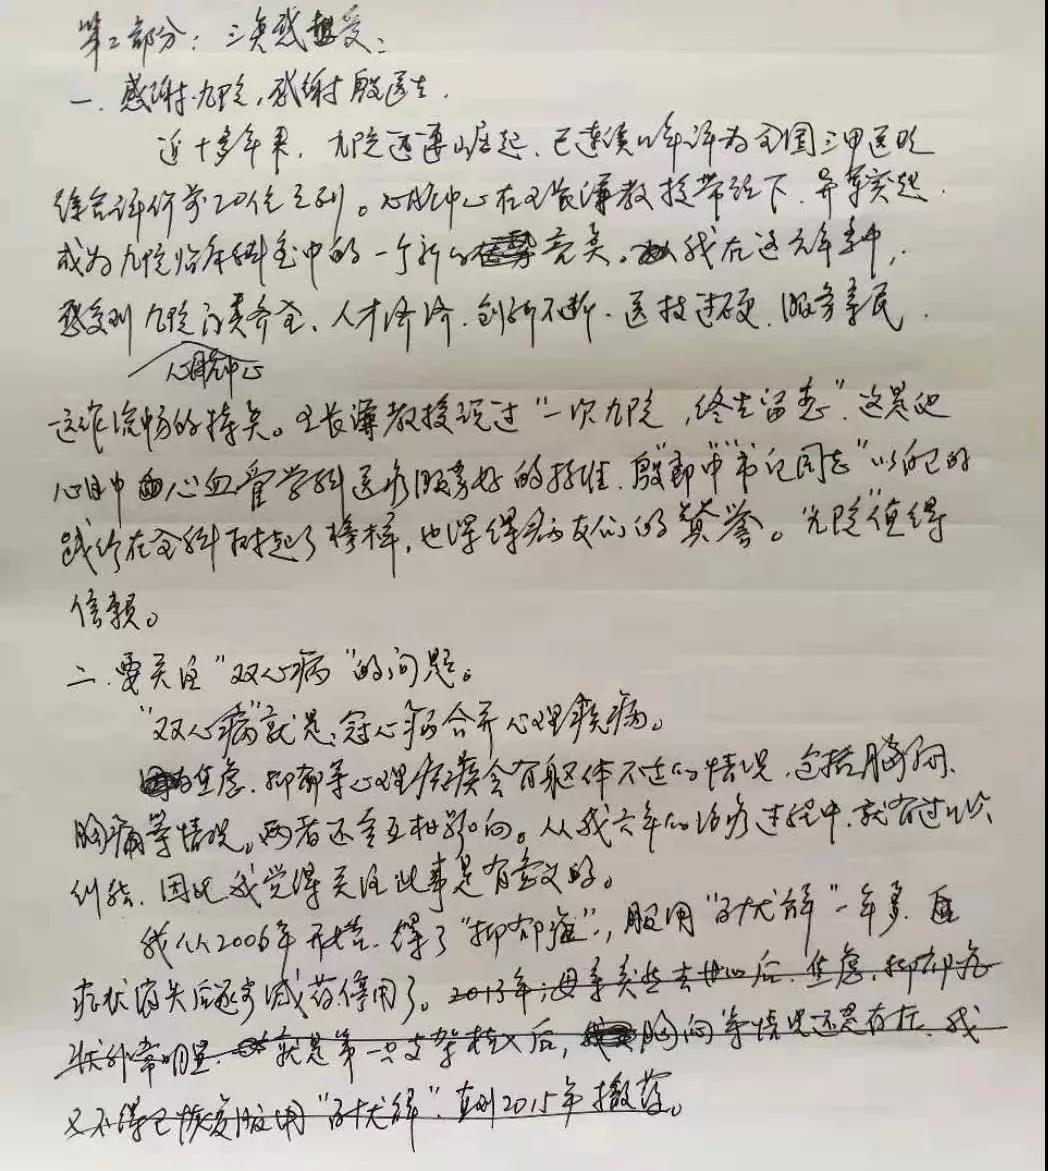 第二部分：三点感受：
一.感谢九院，感谢殷医生.
近十多年来，九院迅速崛起，已连续 年评为全国三甲医院
综合评价前20位之列。心脏中心在王长谦教授带领下，异军突起.
成为九院临床科室中的一个新的 亮点。我在这六年多中，
感受到九院门类齐全、人才济济、创新不断、医技过硬、服务亲民
心脏中心
运作流畅的特点。王长谦教授说过"一次九院，终生留恋"，这是他
心目中心血管学科医疗服务好的标准，殷"郎中""书记同志"以自己的
践行在全科内起了榜样，也深得病友们的赞誉。"九院"值得
信赖。
二.要关注"双心病"的问题。
"双心病"就是：冠心病合并心理疾病。
焦虑、抑郁等心理疾患会有躯体不适的情况，包括胸闷、
胸痛等情况。两者还会互相影响。从我六年的治疗过程中，就有过此类
纠结，因此我觉得关注此事是有意义的。
我从2006年开始，得了"抑郁症"，服用"百忧解"一年多，直
症状消失后逐步减药停用了。2013年，母亲 去世以后，焦虑、抑郁症
状非常明显. 就是第一只支架植入后，胸闷等情况还是存在，我
又不得已恢复服用"百忧解"，直到2015年撤药。